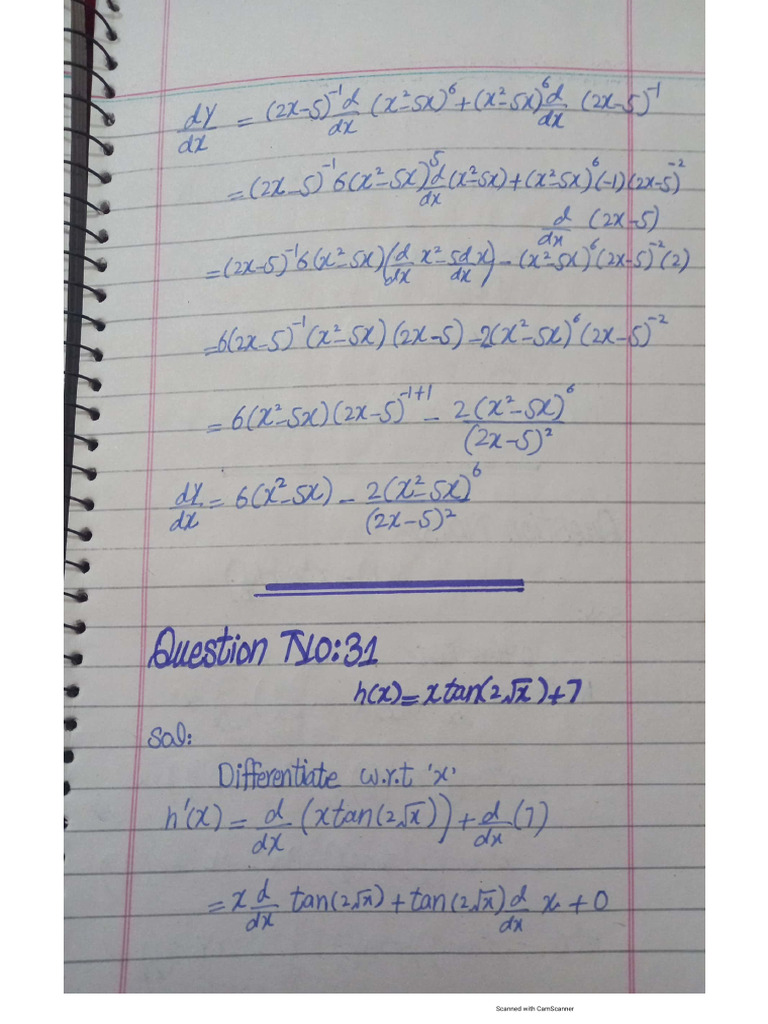 dy/dx = (2x-5)⁻¹ d/dx (x²-5x)⁶ + (x²-5x)⁶ d/dx (2x-5)⁻¹
= (2x-5)⁻¹ 6(x²-5x)⁵ d/dx (x²-5x) + (x²-5x)⁶ (-1)(2x-5)⁻²
d/dx (2x-5)
= (2x-5)⁻¹ 6(x²-5x) (d/dx x² - 5 d/dx x) - (x²-5x)⁶ (2x-5)⁻² (2)
= 6(2x-5)⁻¹ (x²-5x) (2x-5) - 2(x²-5x)⁶ (2x-5)⁻²
= 6(x²-5x) (2x-5)⁻¹⁺¹ - 2(x²-5x)⁶/(2x-5)²
dy/dx = 6(x²-5x) - 2(x²-5x)⁶/(2x-5)²
Question No:31
h(x) = x tan(2√x) + 7
Sol:
Differentiate w.r.t 'x'.
h'(x) = d/dx (x tan(2√x)) + d/dx (7)
= x d/dx tan(2√x) + tan(2√x) d/dx x + 0
Scanned with CamScanner